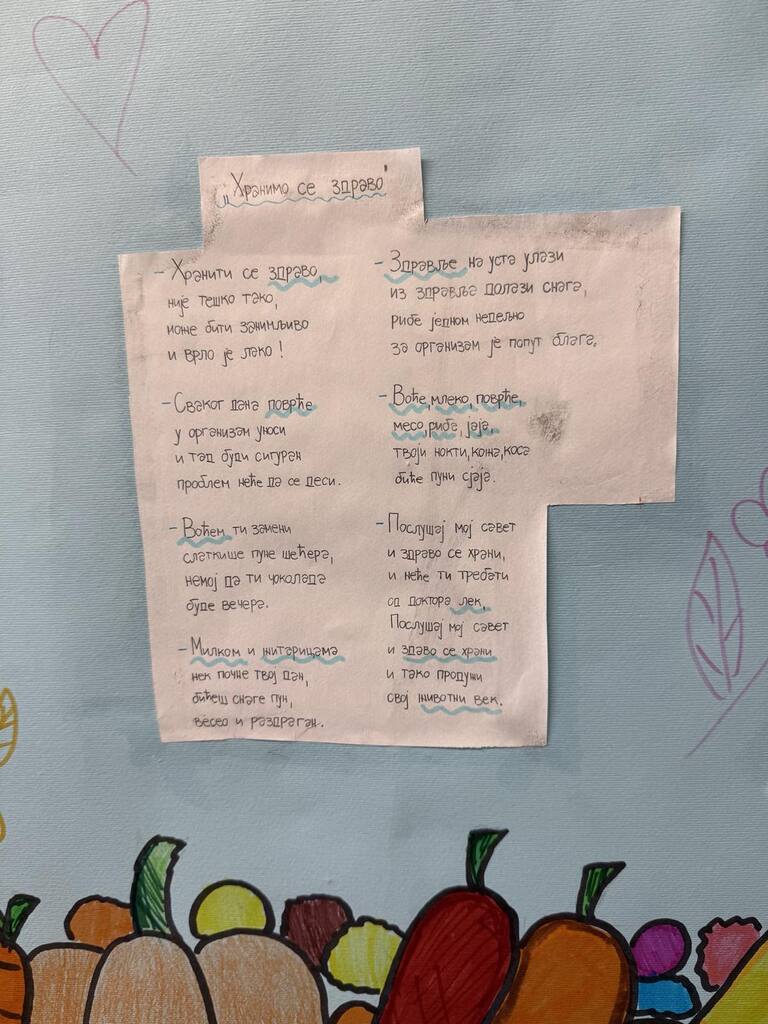 „Хранимо се здраво"
- Хранити се здраво,
није тешко тако,
може бити занимљиво
и врло је лако!
- Сваког дана поврће
у организам уноси
и тад буди сигуран
проблем неће да се деси.
- Воћем ти замени
слаткише пуне шећера,
немој да ти чоколада
буде вечера.
- Милком и житарицама
нек почне твој дан,
бићеш снаге пун,
весео и раздраган.
- Здравље на уста улази
из здравља долази снага,
рибе једном недељно
за организам је попут блага.
- Воће, млеко, поврће,
месо, риба, јаја,
твоји нокти, кожа, коса
биће пуни сјаја.
- Послушај мој савет
и здраво се храни,
и неће ти требати
од доктора лек.
Послушај мој савет
и здаво се храни
и тако продужи
свој животни век.